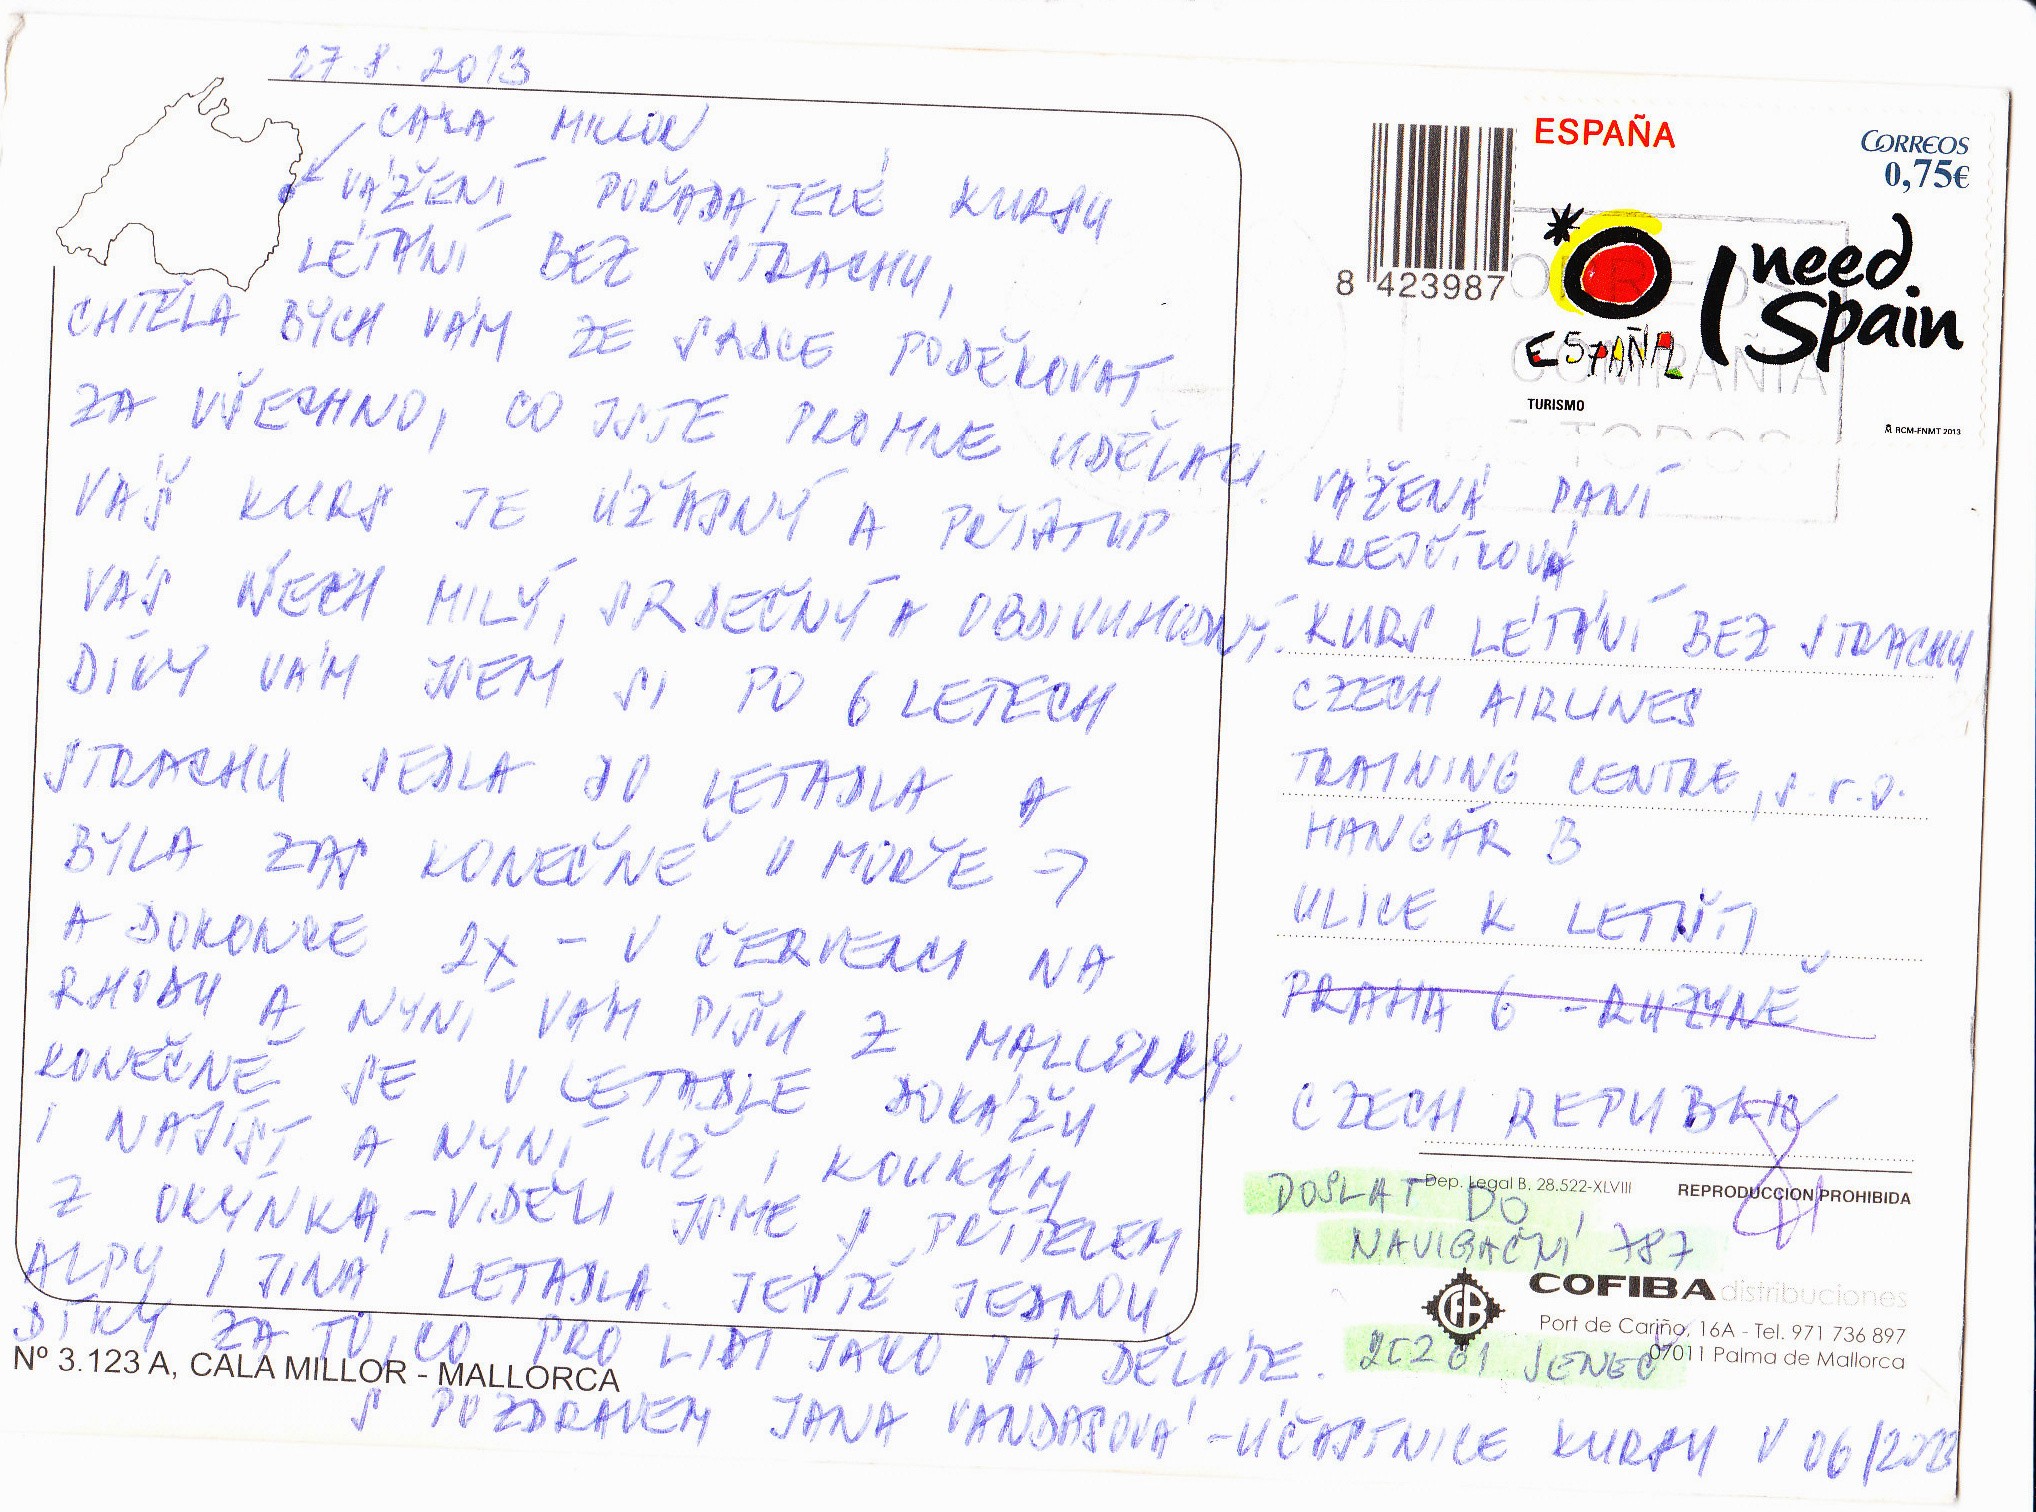 27.8.2013
CALA MILLOR
VÁŽENÍ POŘADATELÉ KURSU
LÉTÁNÍ BEZ STRACHU,
CHTĚLA BYCH VÁM ZE SRDCE PODĚKOVAT
ZA VŠECHNO, CO JSTE PRO MNE UDĚLALI.
VÁŠ KURS JE ÚŽASNÝ A PŘÍSTUP
VÁS VŠECH MILÝ, SRDEČNÝ A OBDIVUHODNÝ.
DÍKY VÁM JSEM SI PO 6 LETECH
STRACHU SEDLA DO LETADLA A
BYLA ZAS KONEČNĚ U MOŘE =>
A DOKONCE 2X - V ČERVENCI NA
RHODU A NYNÍ VÁM PÍŠU Z MALLORKY.
KONEČNĚ SE V LETADLE DOKÁŽU
I NAJÍST A NYNÍ UŽ I KOUKÁM
Z OKÝNKA, - VIDĚLI JSME S PŘÍTELEM
ALPY I JINÁ LETADLA. JEŠTĚ JEDNOU
DÍKY ZA TO, CO PRO LIDI JAKO JÁ DĚLÁTE.
S POZDRAVEM JANA VANDASOVÁ - ÚČASTNICE KURSU V 06/2013
Nº 3.123 A, CALA MILLOR - MALLORCA
8 423987
ESPAÑA
CORREOS
0,75€
I need Spain
ESPAÑA
TURISMO
RCM-FNMT 2013
CORREOS
COMPAÑIA
TODOS
VÁŽENÁ PANÍ
KREJČÍKOVÁ
KURS LÉTÁNÍ BEZ STRACHU
CZECH AIRLINES
TRAINING CENTRE, s.r.o.
HANGÁR B
ULICE K LETIŠTI
PRAHA 6 - RUZYNĚ
CZECH REPUBLIC
Dep. Legal B. 28.522-XLVIII
REPRODUCCION PROHIBIDA
DOSLAT DO
NAVIGAČNÍ 787
252 61 JENEČ
COFIBA distribuciones
Port de Cariño, 16A - Tel. 971 736 897
07011 Palma de Mallorca